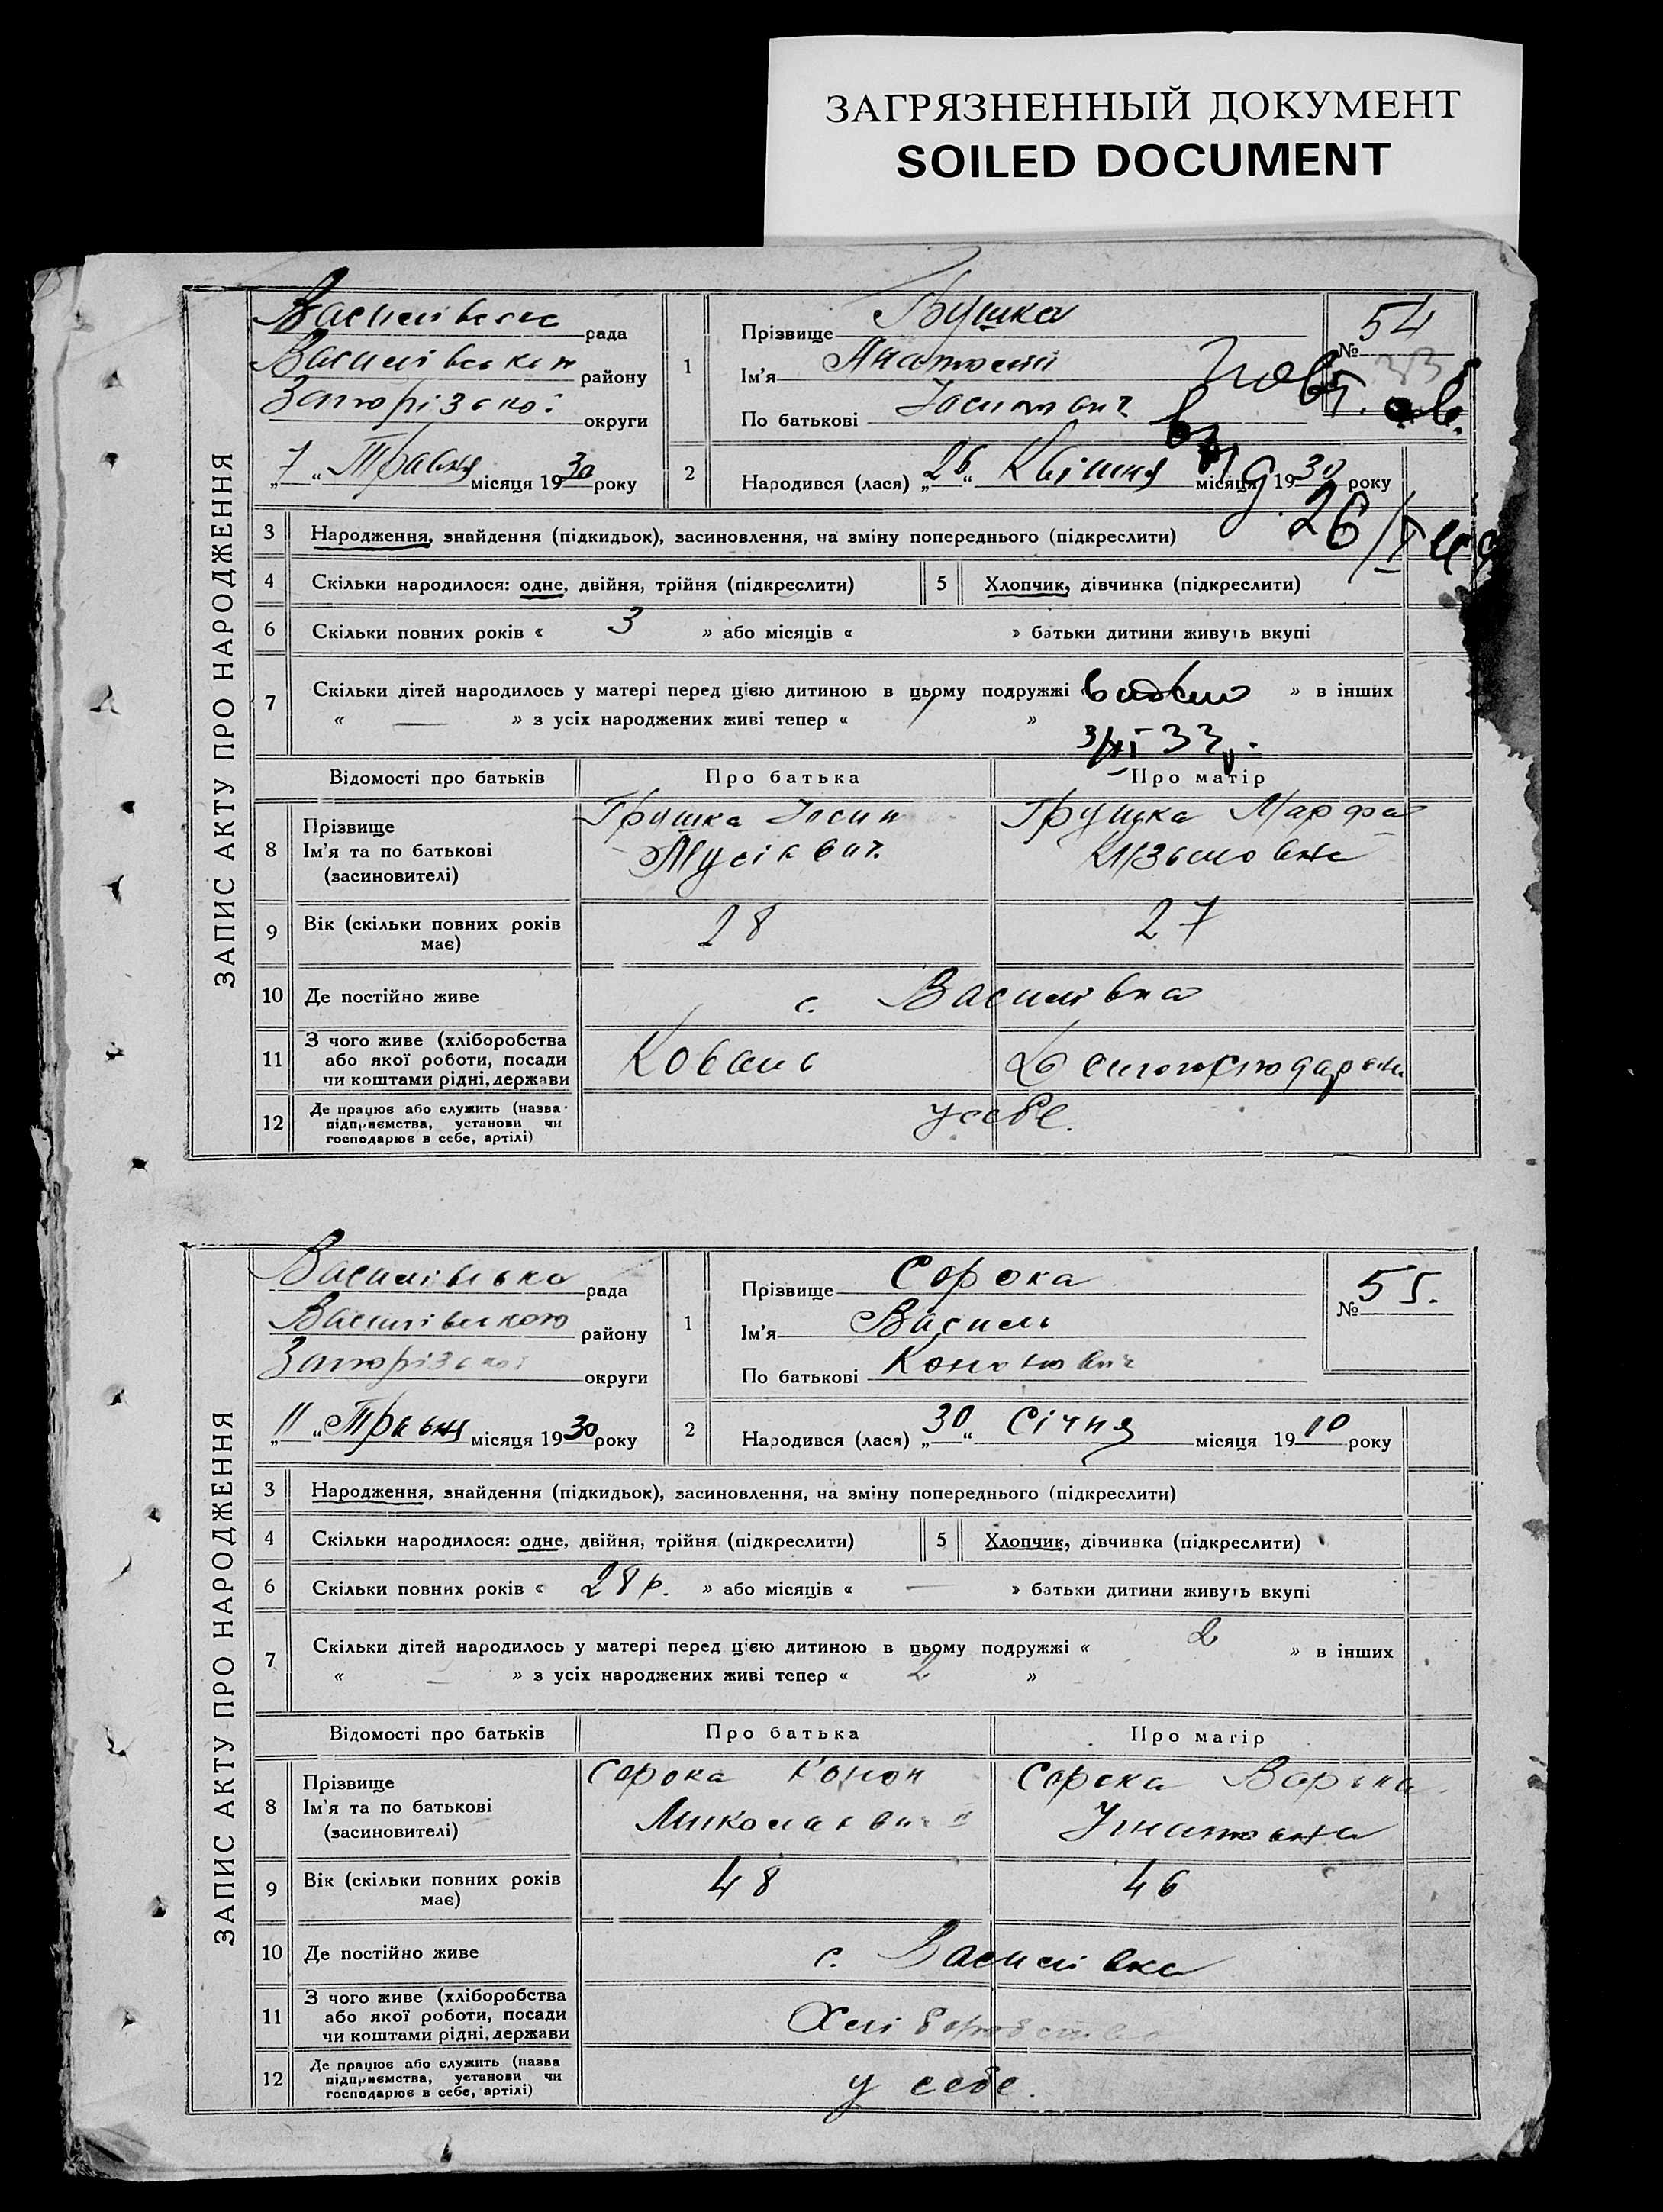 ЗАГРЯЗНЕННЫЙ ДОКУМЕНТ
SOILED DOCUMENT
ЗАПИС АКТУ ПРО НАРОДЖЕННЯ
Василівська рада
Василівського району
Запорізької округи
„7“ Травня місяця 1930 року
1
Прізвище
Ім'я Анатолій
По батькові Йосипович
№ 54
33
повт. св.
вид. 26/I
2
Народився (лася) „26“ Квітня місяця 1930 року
3 Народження, знайдення (підкидьок), засиновлення, на зміну попереднього (підкреслити)
4 Скільки народилося: одне, двійня, трійня (підкреслити) 5 Хлопчик, дівчинка (підкреслити)
6 Скільки повних років « 3 » або місяців « » батьки дитини живуть вкупі
7 Скільки дітей народилось у матері перед цією дитиною в цьому подружжі » в інших
« — » з усіх народжених живі тепер « 1 »
3/XI 33 р.
Відомості про батьків Про батька Про матір
8 Прізвище Ім'я та по батькові (засиновителі)
Грушка Йосип
Мусієвич
Грушка Марфа
Кузьмовна
9 Вік (скільки повних років має) 28 27
10 Де постійно живе с. Василівка
11 З чого живе (хліборобства або якої роботи, посади чи коштами рідні, держави
Коваль
Домогосподарка
12 Де працює або служить (назва підприємства, установи чи господарює в себе, артілі)
у себе.
ЗАПИС АКТУ ПРО НАРОДЖЕННЯ
Василівська рада
Василівського району
Запорізької округи
„11“ Травня місяця 1930 року
1
Прізвище Сорока
Ім'я Василь
По батькові Кононович
№ 55.
2
Народився (лася) „30“ Січня місяця 1910 року
3 Народження, знайдення (підкидьок), засиновлення, на зміну попереднього (підкреслити)
4 Скільки народилося: одне, двійня, трійня (підкреслити) 5 Хлопчик, дівчинка (підкреслити)
6 Скільки повних років « 28 р. » або місяців « — » батьки дитини живуть вкупі
7 Скільки дітей народилось у матері перед цією дитиною в цьому подружжі « 2 » в інших
« — » з усіх народжених живі тепер « 2 »
Відомості про батьків Про батька Про матір
8 Прізвище Ім'я та по батькові (засиновителі)
Сорока Конон
Миколаєвич
Сорока Варвара
Ігнатовна
9 Вік (скільки повних років має) 48 46
10 Де постійно живе с. Василівка
11 З чого живе (хліборобства або якої роботи, посади чи коштами рідні, держави
Хліборобство
12 Де працює або служить (назва підприємства, установи чи господарює в себе, артілі)
у себе.